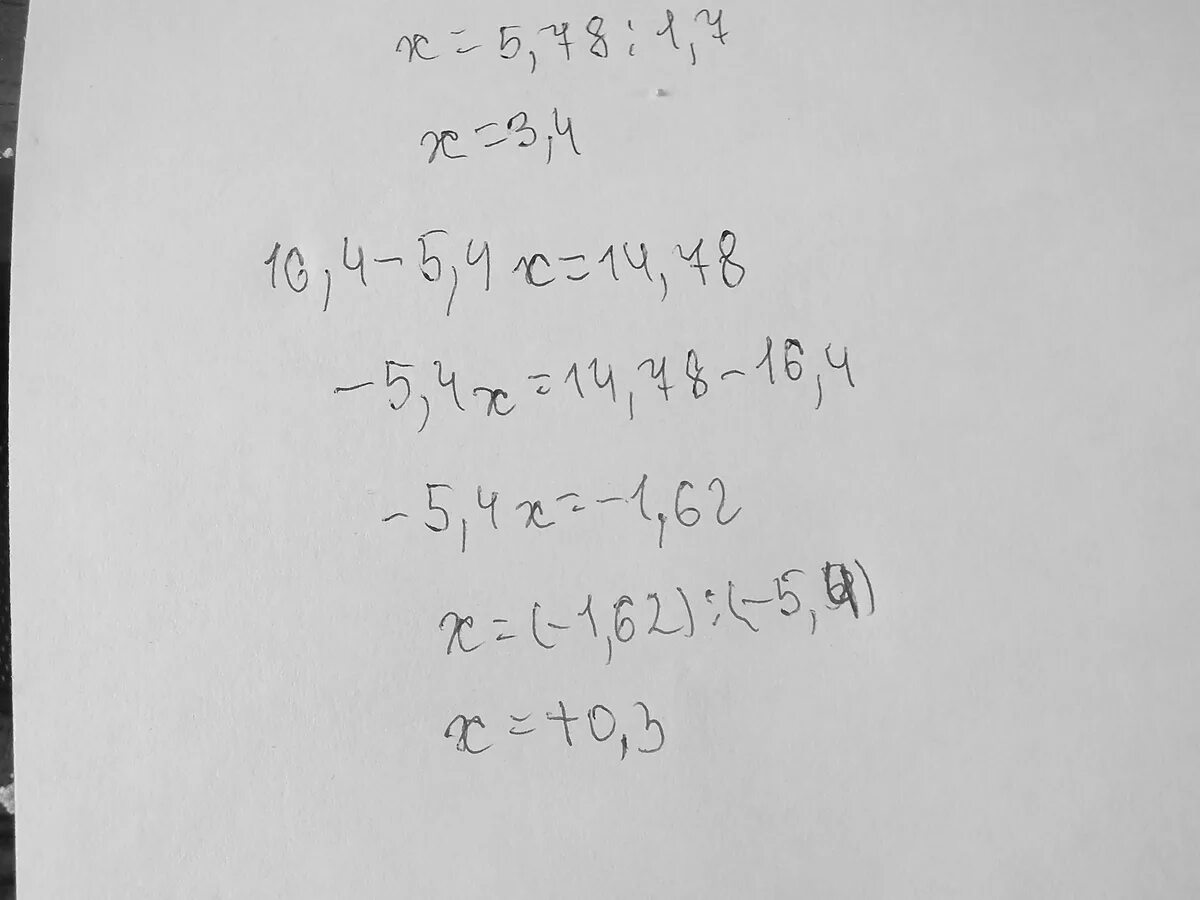 x=5,78:1,7
x=3,4
16,4-5,4x=14,78
-5,4x=14,78-16,4
-5,4x=-1,62
x=(-1,62):(-5,4)
x=+0,3